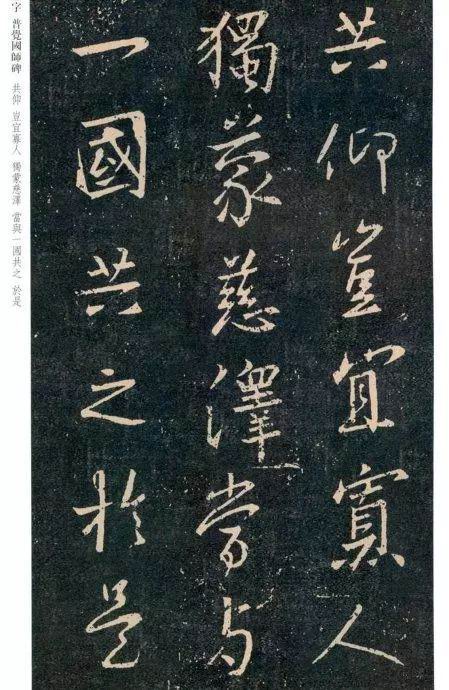 共仰豈宜寡人
獨蒙慈澤當与
一國共之於是
字 普覺國師碑 共仰 豈宜寡人 獨蒙慈澤 當與一國共之 於是